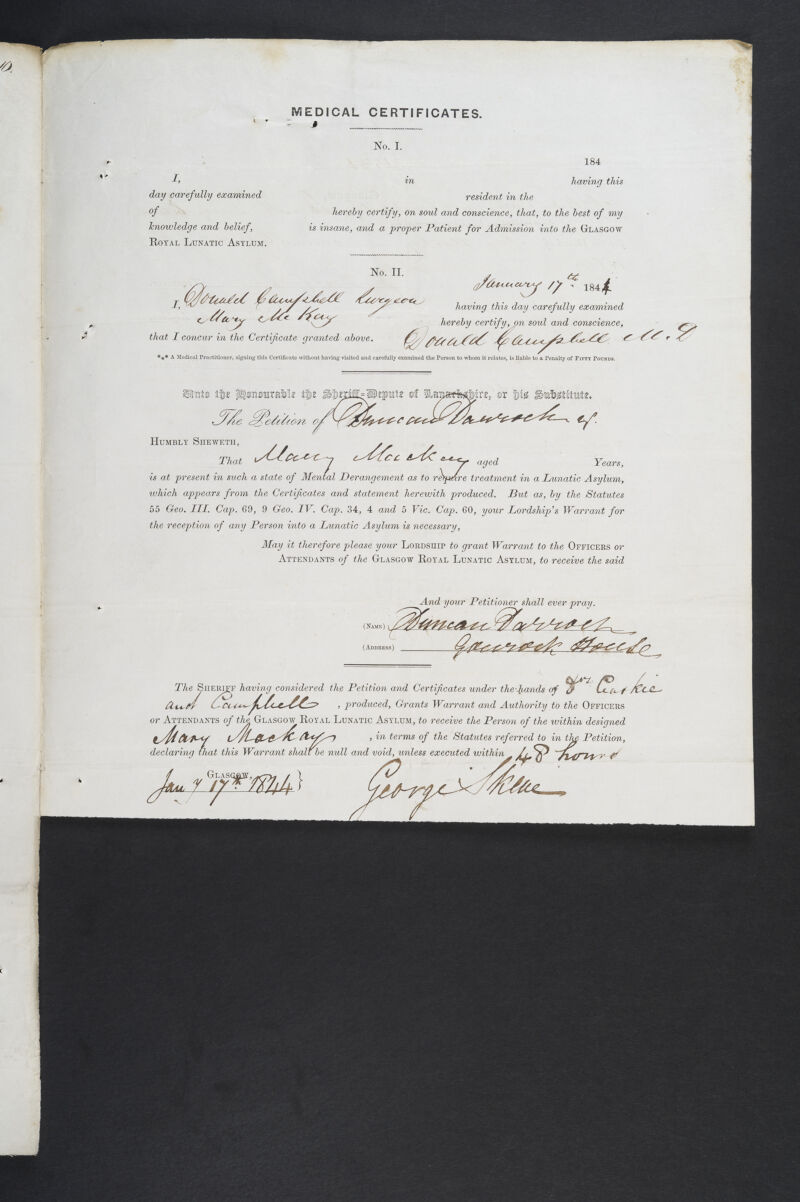 MEDICAL CERTIFICATES.
No. I.
184
I, in having this
day carefully examined resident in the
of hereby certify, on soul and conscience, that, to the best of my
knowledge and belief, is insane, and a proper Patient for Admission into the GLASGOW
ROYAL LUNATIC ASYLUM.
No. II.
January 17th 1844
I, Donald Campbell Surgeon having this day carefully examined
Mary McKay hereby certify, on soul and conscience,
that I concur in the Certificate granted above. Donald Campbell M.D
*** A Medical Practitioner, signing this Certificate without having visited and carefully examined the Person to whom it relates, is liable to a Penalty of FIFTY POUNDS.
Unto the Honourable the Sheriff-Depute of Lanarkshire, or his Substitute.
The Petition of Duncan Darroch
HUMBLY SHEWETH,
That Mary Mackay aged Years,
is at present in such a state of Mental Derangement as to require treatment in a Lunatic Asylum,
which appears from the Certificates and statement herewith produced. But as, by the Statutes
55 Geo. III. Cap. 69, 9 Geo. IV. Cap. 34, 4 and 5 Vic. Cap. 60, your Lordship's Warrant for
the reception of any Person into a Lunatic Asylum is necessary,
May it therefore please your LORDSHIP to grant Warrant to the OFFICERS or
ATTENDANTS of the GLASGOW ROYAL LUNATIC ASYLUM, to receive the said
And your Petitioner shall ever pray.
(NAME) Duncan Darroch
(ADDRESS) Gourock House
The SHERIFF having considered the Petition and Certificates under the hands of Drs Caskie
and Campbell , produced, Grants Warrant and Authority to the OFFICERS
or ATTENDANTS of the GLASGOW ROYAL LUNATIC ASYLUM, to receive the Person of the within designed
Mary Mackay , in terms of the Statutes referred to in the Petition,
declaring that this Warrant shall be null and void, unless executed within 48 hours
GLASGOW,
Jany 17th 1844 } George Skene